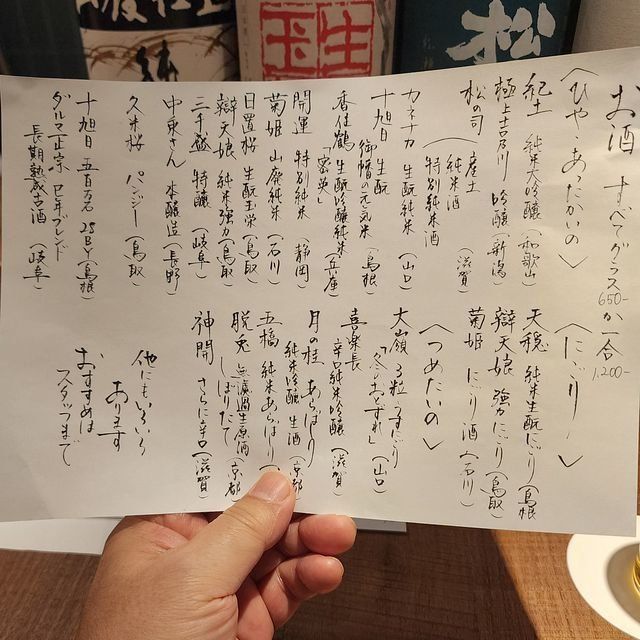 お酒 すべてグラスか一合
650- 1,200-
〈ひや・あたたかいの〉
紀土 純米大吟醸(和歌山)
極上吉乃川 吟醸(新潟)
松の司
産土
純米酒
特別純米酒
(滋賀)
カネナカ 生酛純米(山口)
十旭日 生酛
御幡の元気米(島根)
香住鶴 生酛吟醸純米(兵庫)
開運 特別純米(静岡)
菊姫 山廃純米(石川)
日置桜 生酛玉栄(鳥取)
辯天娘 純米強力(鳥取)
三千盛 特醸(岐阜)
中乗さん 本醸造(長野)
久米桜 パンジー(鳥取)
十旭日 五百万石 25BY(島根)
ダルマ正宗 巳年ブレンド
長期熟成古酒(岐阜)
〈にごりー〉
天穏 純米生酛にごり(島根)
辯天娘 強力にごり(鳥取)
菊姫 にごり酒(石川)
〈つめたいの〉
大嶺3粒 うすにごり
「冬のおとずれ」(山口)
喜楽長 辛口純米吟醸(滋賀)
月の桂 あらばしり
純米吟醸 生酒(京都)
五橋 純米あらばしり(
脱兎 無濾過生原酒
しぼりたて(京都)
神開 さらに辛口(滋賀)
他にもいろいろ
あります
おすすめは
スタッフまで
純
玉
生
松